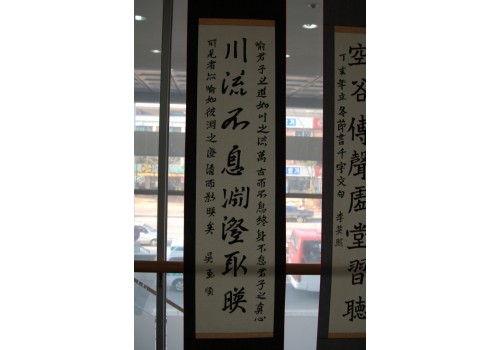 空谷傳聲虛堂習聽
丁亥年立冬節書千字文句
喻君子之道如川之流萬古而不息終身不息君子之貞心
川流不息淵澄取暎
可見者亦喻如彼淵之澄清而影暎矣